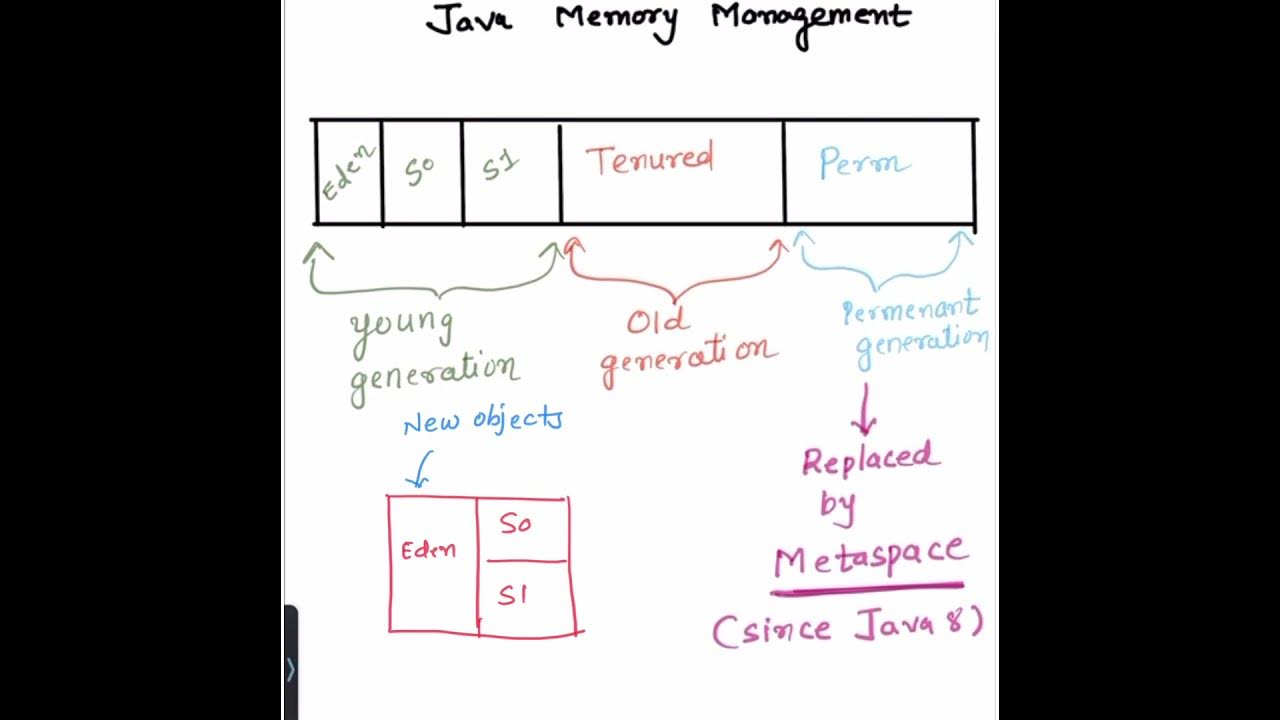 Java Memory Management
Eden S0 S1 Tenured Perm
young
generation
Old
generation
Permenant
generation
New objects
Eden
S0
S1
Replaced
by
Metaspace
(since Java 8)